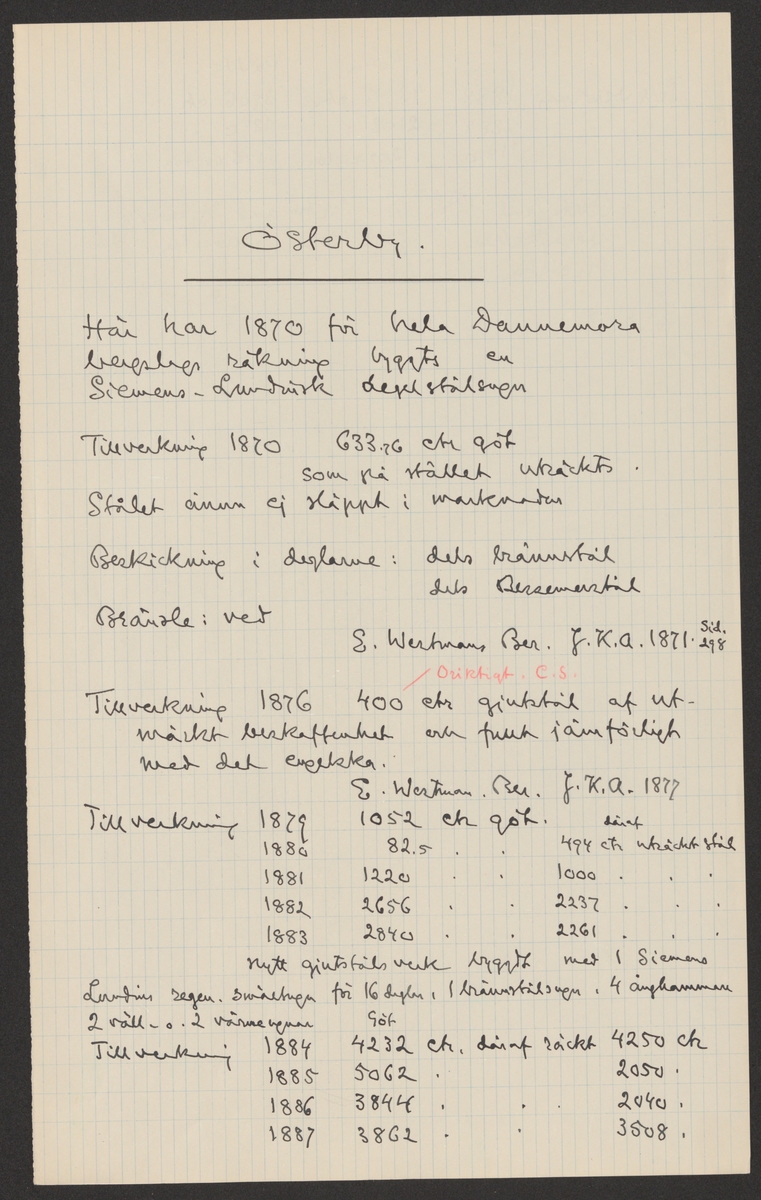 Österby.
Här har 1870 för hela Dannemora
bergslags räkning byggts en
Siemens-Lundinsk degelstålsugn
Tillverkning 1870 633.76 ctr göt
som på stället uträckts.
Stålet ännu ej släppt i marknaden
Beskickning i deglarne: dels brännstål
dels Bessemerstål
Bränsle: ved
E. Westmans Ber. J.K.A. 1871. Sid. 298
Oriktigt. C.S.
Tillverkning 1876 400 ctr gjutstål af ut-
märkt beskaffenhet och fullt jämförligt
med det engelska.
E. Westman. Ber. J.K.A. 1877
Tillverkning 1879 1052 ctr göt. däraf
1880 82.5 . . 494 ctr uträckt stål
1881 1220 . . 1000 . . .
1882 2656 . . 2237 . . .
1883 2840 . . 2261 . . .
nytt gjutstålsverk byggdt med 1 Siemens
Lundins regen. smältugn för 16 deglar, 1 brännstålsugn, 4 ånghammare
2 väll- o. 2 värmeugnar
Göt
Tillverkning 1884 4232 ctr, däraf räckt 4250 ctr
1885 5062 . 2050 .
1886 3844 . . . 2040 .
1887 3862 . . 3508 .